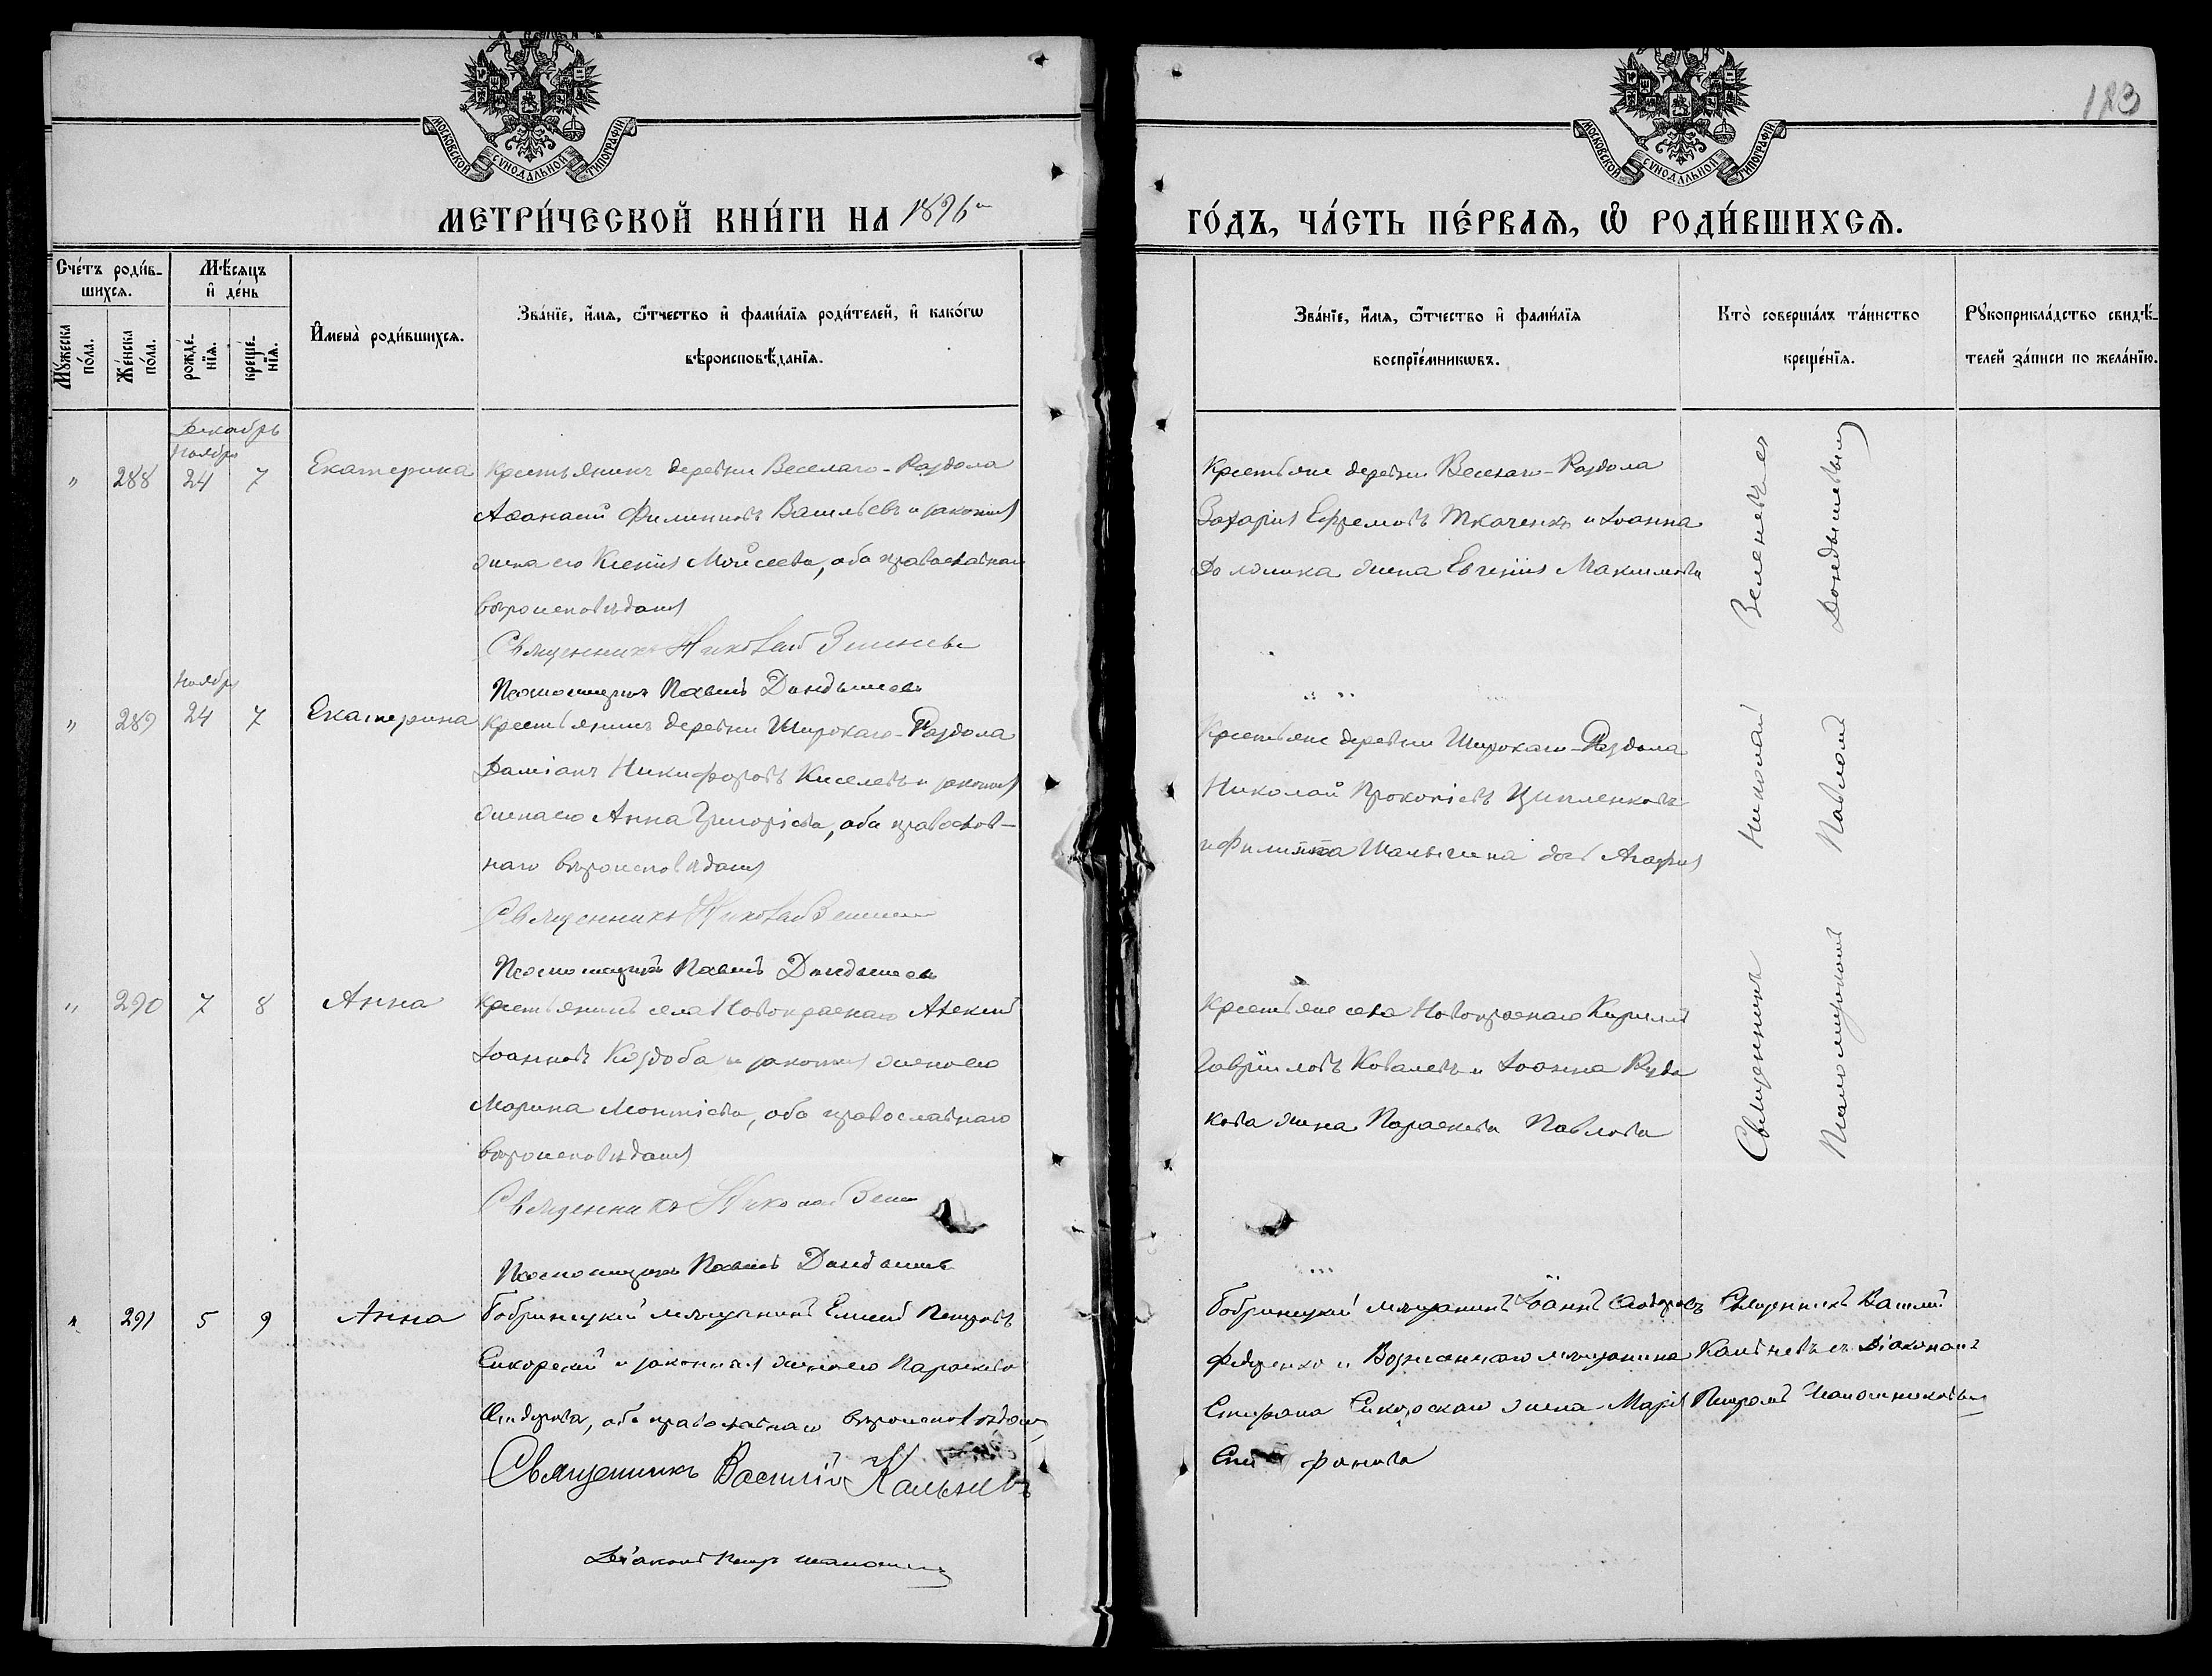 183
МОСКОВСКОЙ СѴНОДАЛЬНОЙ ТИПОГРАФІИ
МОСКОВСКОЙ СѴНОДАЛЬНОЙ ТИПОГРАФІИ
МЕТРИ́ЧЕСКОЙ КНИ́ГИ НА 1896
ГО́ДЪ, ЧА́СТЬ ПЕ́РВАѦ, Ѡ҆ РОДИ́ВШИХСѦ.
Сче́тъ роди́в-
шихсѧ.
Мꙋ́жеска по́ла.
Же́нска по́ла.
Мѣ́сѧцъ
и҆ де́нь
рожде́-
нїѧ.
креще́-
нїѧ.
И҆мена̀ роди́вшихсѧ.
Зва́нїе, и҆́мѧ, ѻ҆́тчество и҆ фами́лїѧ роди́телей, и҆ како́гѡ
вѣроисповѣ́данїѧ.
Зва́нїе, и҆́мѧ, ѻ҆́тчество и҆ фами́лїѧ
воспрїе́мникѡвъ.
Кто̀ соверша́лъ та́инство
креще́нїѧ.
Рꙋкоприкла́дство свидѣ́-
телей за́писи по жела́нїю.
Декабрь
Ноября
" 288 24 7 Екатерина
Крестьянинъ деревни Веселаго-Раздола
Аѳанасій Филиповъ Васильевъ и законная
жена его Ксенія Моѵсеева, оба православнаго
вѣроисповѣданія
Священникъ Николай
Псаломщикъ Павелъ Дондышевъ
Крестьяне деревни Веселаго-Раздола
Захарія Ефремовъ Ткаченко и Іоанна
жена Евгенія Максимова
Ноября
" 289 24 7 Екатерина
Крестьянинъ деревни Широкаго-Раздола
Даміанъ Никифоровъ Киселевъ и законная
жена его Анна Григоріева, оба православ-
наго вѣроисповѣданія
Священникъ Николай
Псаломщикъ Павелъ Дондышевъ
Крестьяне деревни Широкаго-Раздола
Николай Прокопіевъ Цыпленковъ
и Филиппа дочь Агафія
" 290 7 8 Анна
Крестьянинъ села Новокраснаго Алексій
Іоанновъ Коздоба и законная жена его
Марина оба православнаго
вѣроисповѣданія
Священникъ Николай
Псаломщикъ Павелъ Дондышевъ
Крестьяне села Новокраснаго Кириллъ
Гавріиловъ Ковалевъ и Іоанна
кова жена Параскева Павлова
Священникъ Николай
Псаломщикомъ Павломъ Дондышевымъ
" 291 5 9 Анна
Бобринецкій мѣщанинъ Елисей Петровъ
Сикорскій и законная жена его Параскева
оба православнаго вѣроисповѣданія
Священникъ Василій
Діаконъ Петръ
Бобринецкій мѣщанинъ Іоаннъ
Федоренко и мѣщанина
Стефана Сикорскаго жена Марія
Священникъ Василій
съ Діакономъ
Петромъ